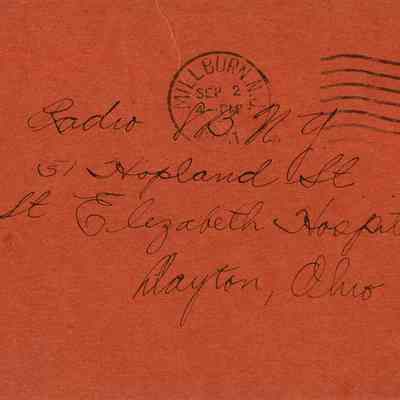 MILLBURN N.
SEP 2
4-PM
Radio 1 B. N. Y.
51 Hopland St
St Elizabeth Hospit
Dayton, Ohio